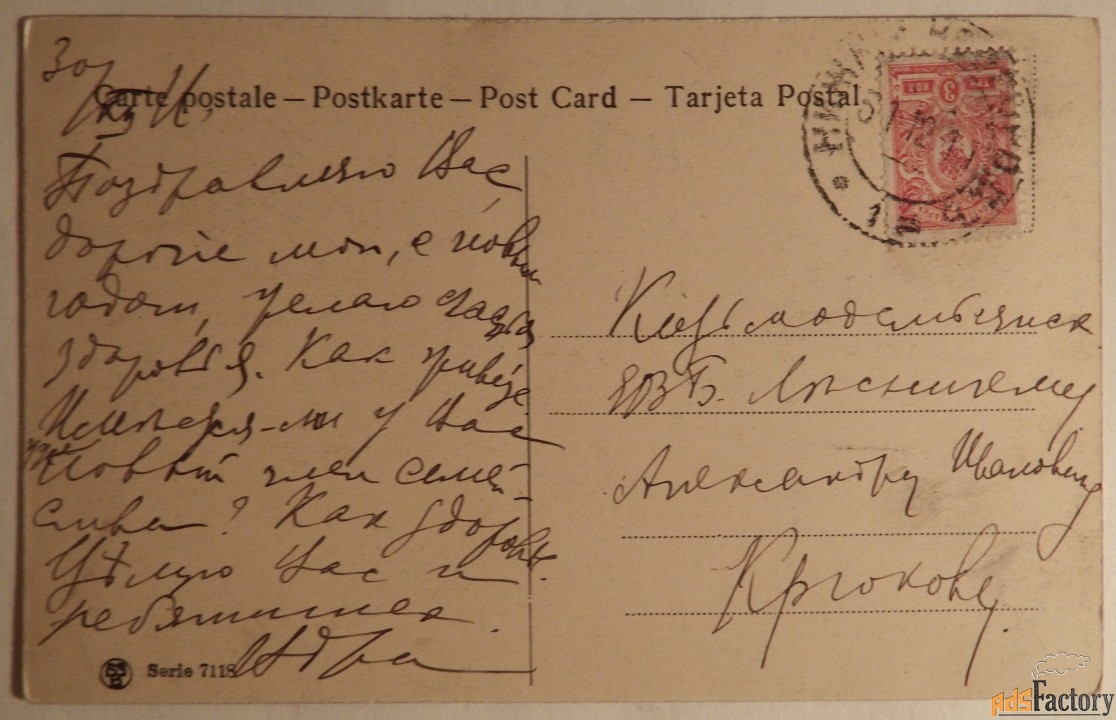 30/XII
Carte postale — Postkarte — Post Card — Tarjeta Postal
Поздравляю Вас
дорогіе мои, с новым
годом, желаю счастья
здоровья. Как живете
Имеется-ли у Вас
уже
новый член семей-
ства? Как здоровье.
Цѣлую Вас и
ребятишек.
Serie 7118
3
1
Козьмодемьянск
Лѣсничему
Александру Ивановичу
Крюкову
AdsFactory